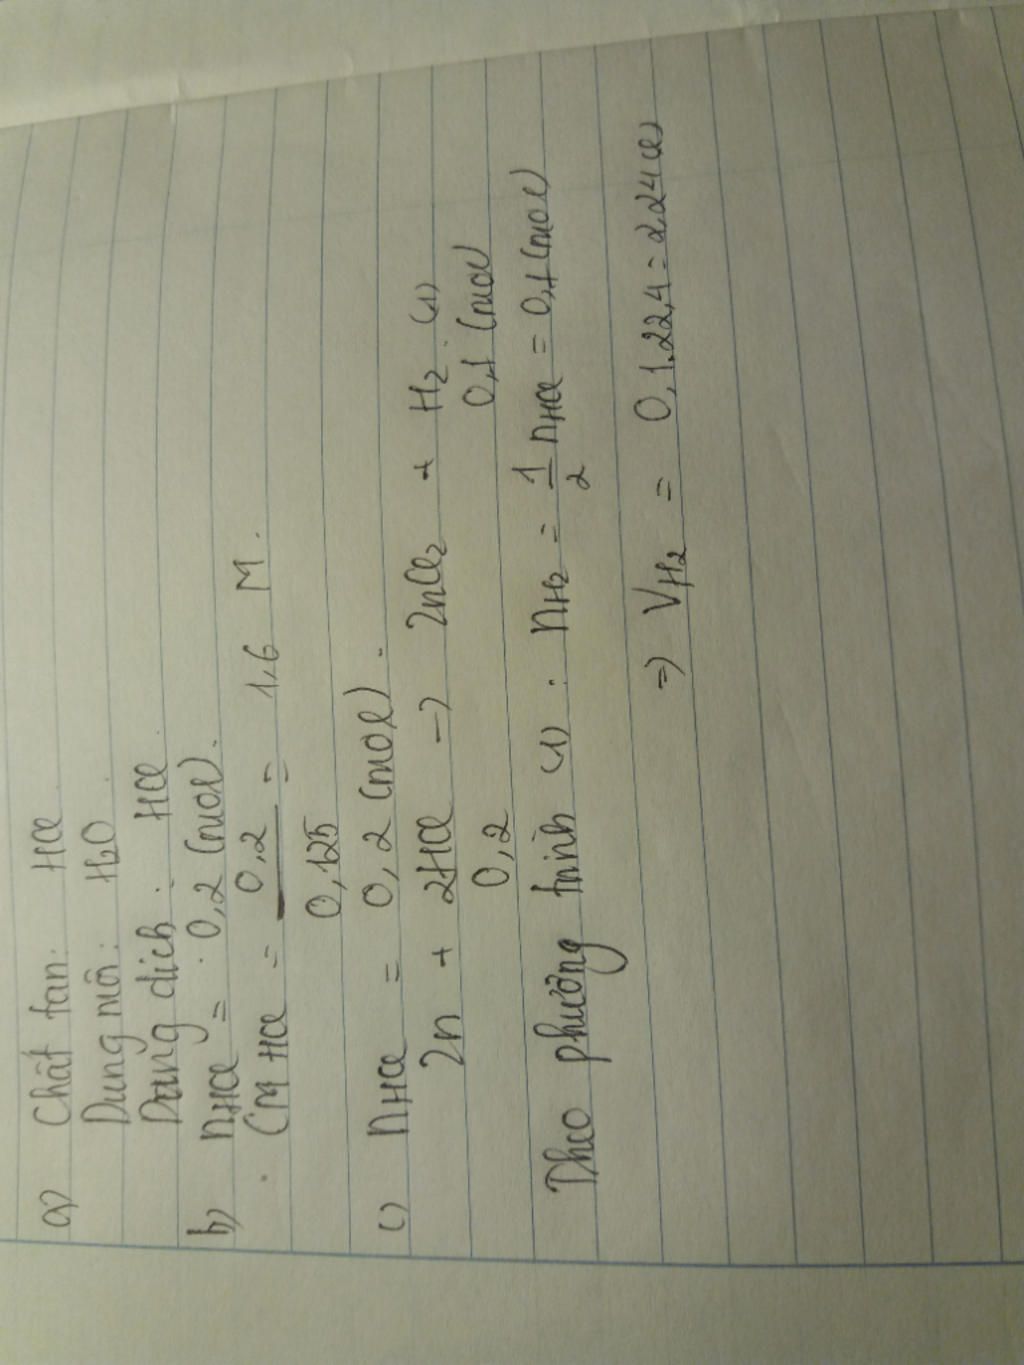 a) Chất tan: HCl
Dung môi: H₂O
Dung dịch: HCl
b) nHCl = 0,2 (mol).
CM HCl = 0,2 / 0,125 = 1,6 M.
c) nHCl = 0,2 (mol).
Zn + 2HCl → ZnCl₂ + H₂ (1)
0,2 0,1 (mol)
Theo phương trình (1): nH₂ = 1/2 nHCl = 0,1 (mol)
⇒ VH₂ = 0,1.22,4 = 2,24 (l)